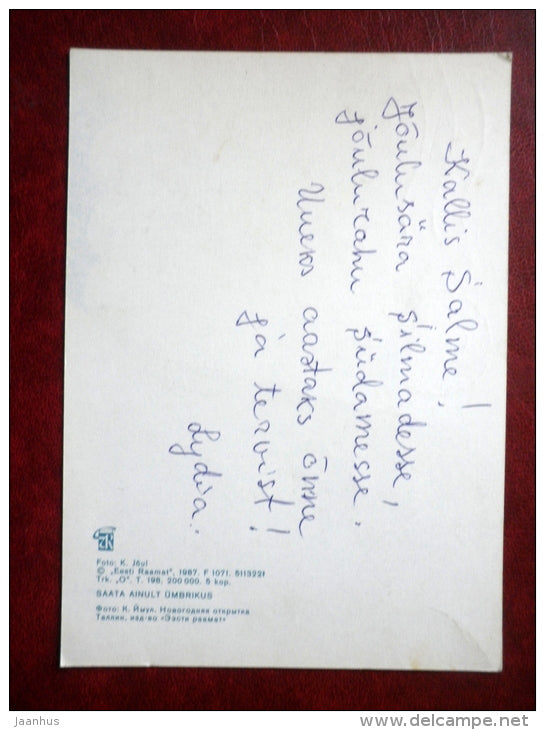 Kallis Salme!
Jõulusära silmadesse,
jõulurahu südamesse.
Uueks aastaks õnne
ja tervist!
Lydia.
Foto: K. Jõul
© „Eesti Raamat", 1987. F 1071. 611322f
Trk. „O". T. 198. 200 000. 5 kop.
SAATA AINULT ÜMBRIKUS
Фото: К. Ймул. Новогодняя открытка
Таллин, изд-во «Ээсти раамат»
Jaanhus
www.delcampe.net